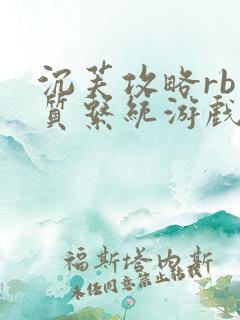 沉芙攻略rb
質系統游戲
福斯塔内斯
未经同意禁止转载